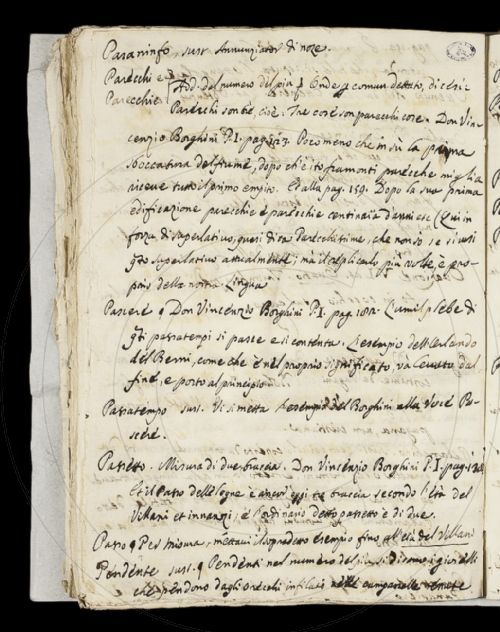 Paraninfo, sust. Annunziator di noze.
Parecchi e
Parecchie. Add. del numero del più. Onde p comun dettato, dicesi:
Parecchi son tre, cioè. Tre cose son parecchi cose. Don Vin-
cenzio Borghini P. I. pag. 123. Poco meno che in su la prima
sboccatura del fiume, dopo ch'è ito fra monti parecchie miglia
riceve tutto il primo empito. Et alla pag. 159. Dopo la sua prima
edificazione parecchie e parecchie centinaia d'anni ec. Qui in
forza di superlativo, quasi dica Parecchissime, che non so se si usi
superlativo attualmente; ma il replicarlo più volte, è pro-
prio della nostra lingua
Pascere Don Vincenzio Borghini P. I. pag. L'umil plebe di
passatempi si pasce e si contenta. L'esempio dell'Orlando
del Berni, come che è nel proprio significato, va levato dal
fine, e posto al principio
Passatempo sust. Vi si metta l'esempio del Borghini alla Voce Pa-
scere.
Passetto. Misura di due braccia. Don Vincenzio Borghini P. I. pag.
Et il Passo delle Pogne è ancor'egli tre braccia secondo l'età del
Villani et innanzi, e l'ordinario detto passetto è di due.
Passo Per misura, mettaci il sopradetto esempio fino all'età del Villani
Pendente sust. Pendenti nel numero del più si dicono i gioielli
che pendono dagli orecchi infilati nelle campanelle